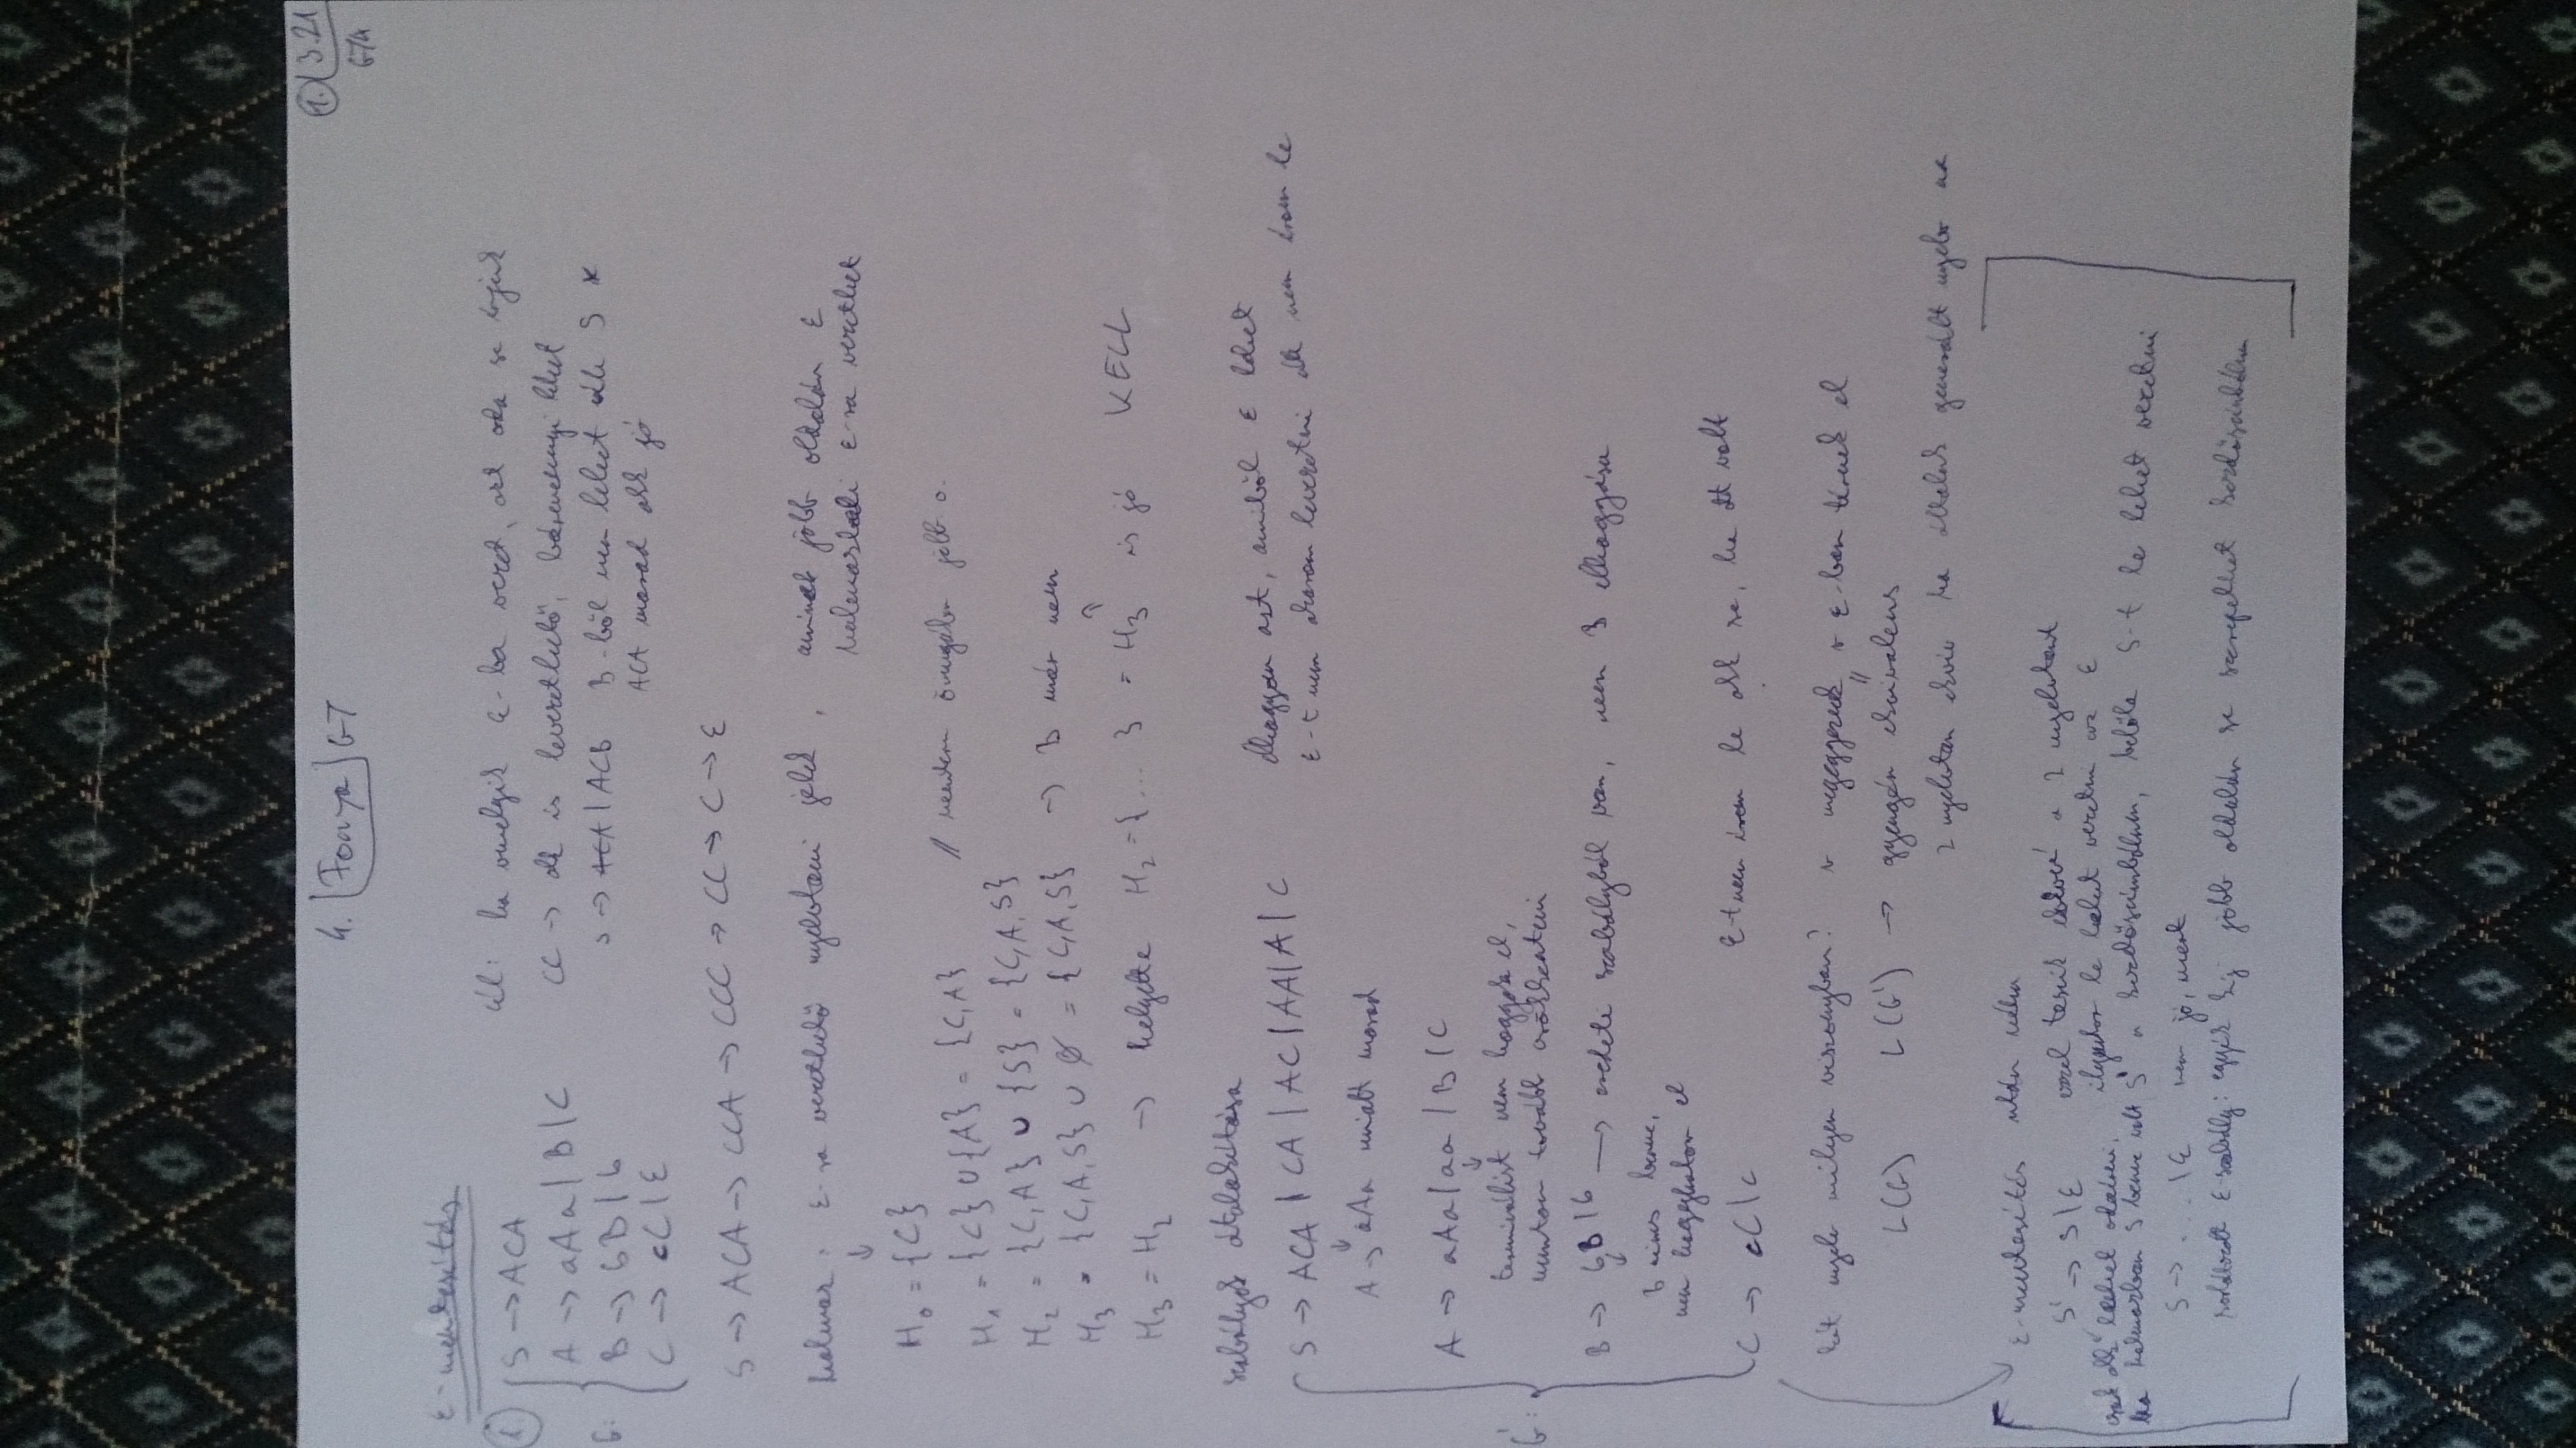 4. [Fonya] GY
1. | 3.21
GYA
ε-mentesítés
1. S → ACA
cél: ha valamelyik ε-ba vezet, azt oda se írjuk
A → aAa | B | C
CC → ε is levezethető, bármennyi lehet
G:
B → bB | b
S → ACA | ACB B-ből nem lehet ε
ACA marad jó
C → cC | ε
S → ACA → CCA → CCC → CC → C → ε
halmaz: ε-ra vezethető nyelvtani jelek, aminek jobb oldalán ε
halmazbeli ε-ra vezethet
↓
H₀ = {C}
H₁ = {C} ∪ {A} = {C,A} // önmagában jobb o.
H₂ = {C,A} ∪ {S} = {C,A,S}
H₃ = {C,A,S} ∪ ∅ = {C,A,S} → B már nem
H₃ = H₂ → helyette H₂ = {... } = H₃ is jó KELL
szabályok átalakítása
S → ACA | CA | AC | AA | A | C
elhagyom azt, amiből ε lehet
ε-t nem akarom levezetni nem írom le
↓
A → aAa miatt marad
A → aAa | aa | B | C
↓
terminálist nem hagyok el,
tovább csökkenteni
G':
B → bB | b → eredeti szabályból van, nem B elhagyása
B nincs benne,
nem hagyhatom el
C → cC | c
ε-t nem írom le se, ha ott volt
két nyelv milyen viszonyban? v megegyezek v ε-ban térnek el
L(G) L(G') → gyengén ekvivalens
2 nyelvtan ekviv ha általuk generált nyelv
ε-mentesítés után néha
S' → S | ε ezzel teszik ekvivé a 2 nyelvtant
ilyenkor le lehet vezetni az ε
csak lehet odaírni,
ha halmazban S benne volt S' a kezdőszimbólum, belőle S-t le lehet vezetni
S → ... | ε nem jó, mert
korlátozott ε-szabály: egyik szabály jobb oldalán se szerepelhet kezdőszimbólum